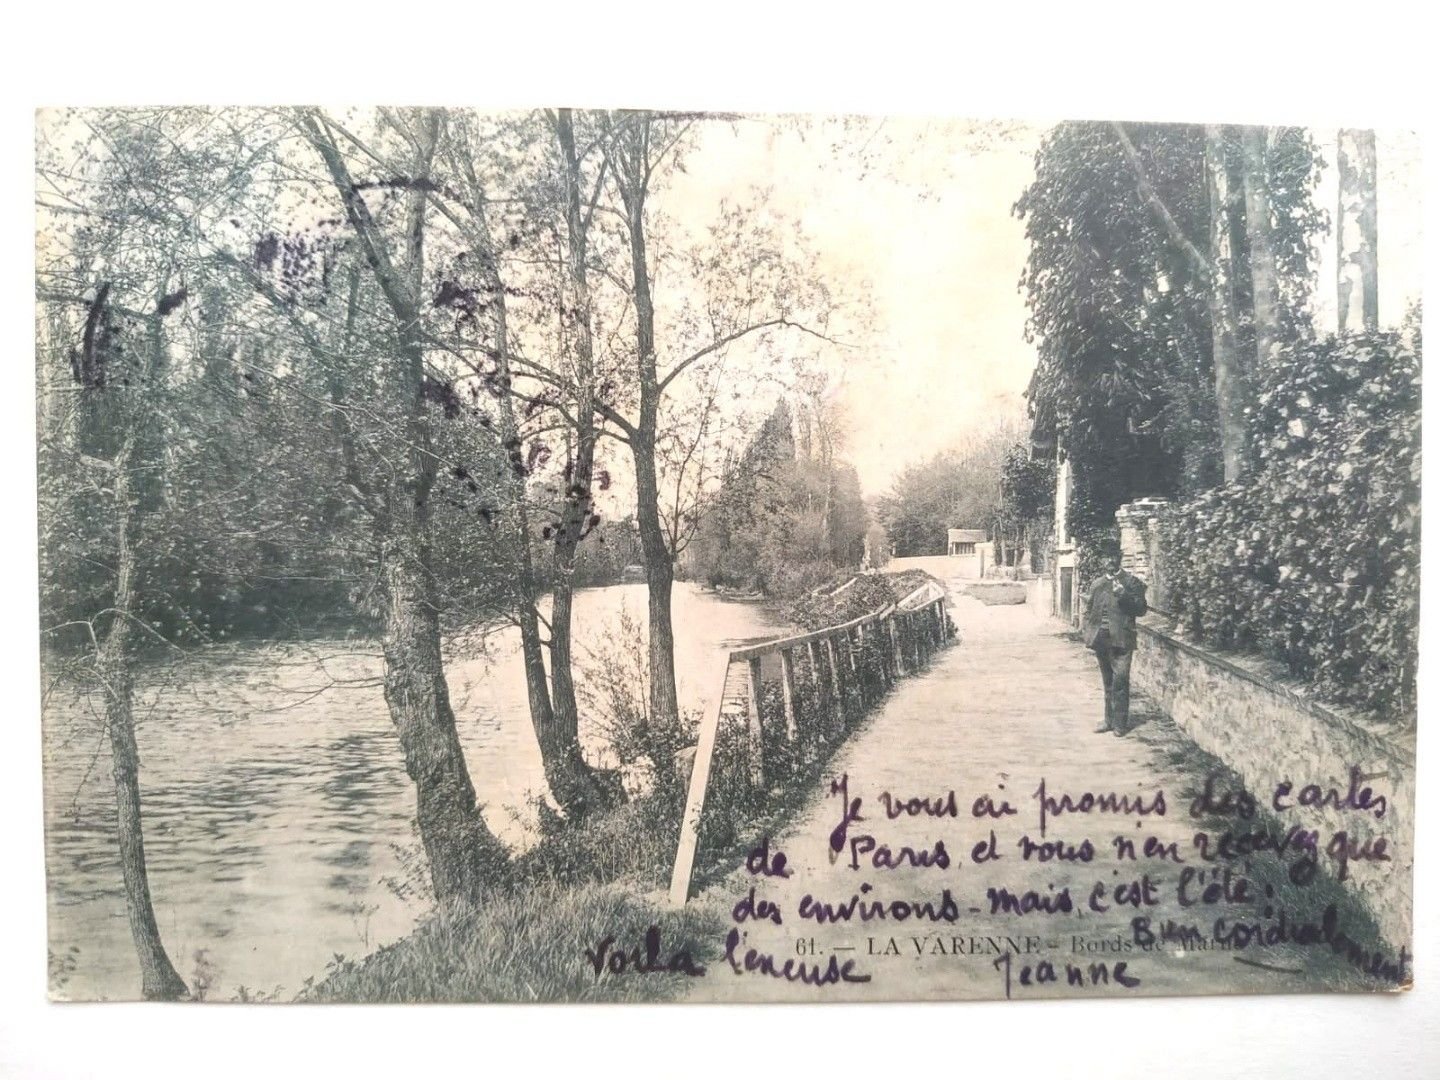 Je vous ai promis des cartes
de Paris, et vous n'en recevez que
des environs - mais, c'est l'été.
Voila l'excuse
Bien cordialement
Jeanne
61. — LA VARENNE - Bords de Marne